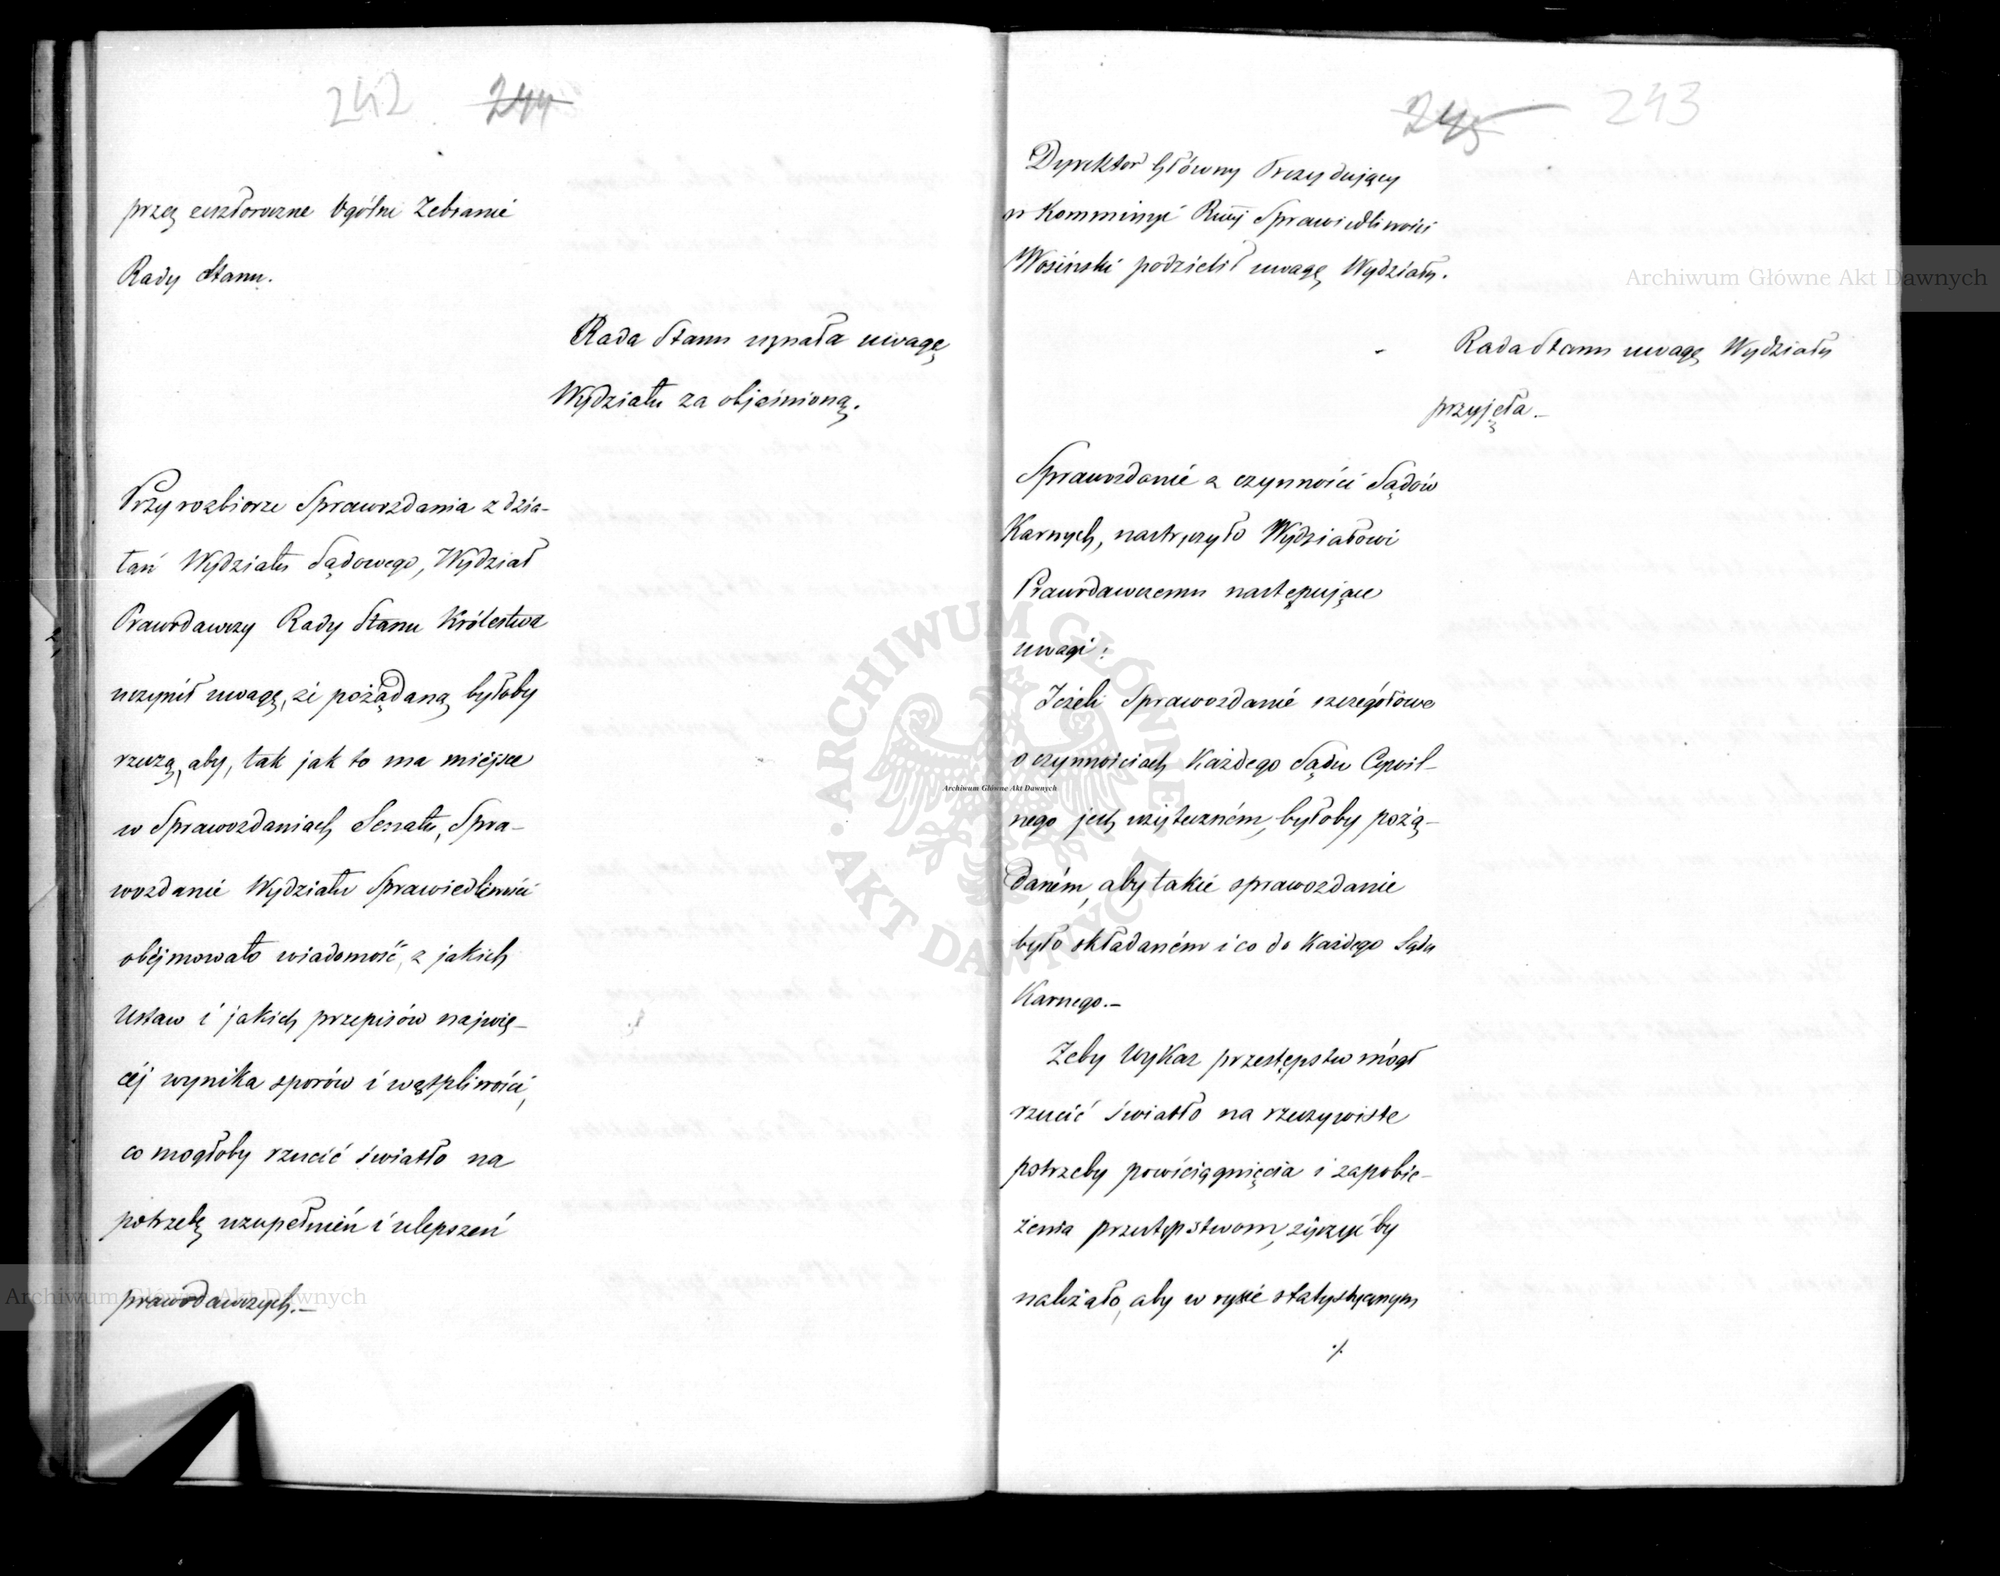 242 244
przez zeszłoroczne Ogólne Zebranie
Rady Stanu.
Rada Stanu uznała uwagę
Wydziału za objaśnioną.
Przy rozbiorze Sprawozdania z dzia-
łań Wydziału Sądowego, Wydział
Prawodawczy Rady Stanu Królestwa
uczynił uwagę, że pożądaną byłoby
rzeczą, aby, tak jak to ma miéjsce
w Sprawozdaniach Senatu, Spra-
wozdanie Wydziału Sprawiedliwości
obéjmowało wiadomość, z jakich
Ustaw i jakich przepisów najwię-
céj wynika sporów i wątpliwości,
co mogłoby rzucić światło na
potrzebę uzupełnień i ulepszeń
prawodawczych.—
245 243
Dyrektor Główny Prezydujący
w Kommissyi Rząj Sprawiedliwości
Wosiński podzielił uwagę Wydziału.
Rada Stanu uwagę Wydziału
przyjęła.—
Sprawozdanie z czynności Sądów
Karnych, nastręczyło Wydziałowi
Prawodawczemu następujące
uwagi:
Jeżeli Sprawozdanie szczegółowe
o czynnościach każdego Sądu Cywil-
nego jest użyteczném, byłoby pożą-
daném, aby takie sprawozdanie
było składaném i co do każdego Sądu
Karnego.—
Żeby Wykaz przestępstw mógł
rzucić światło na rzeczywiste
potrzeby powściągnięcia i zapobie-
żenia przestępstwom, życzyć by
należało, aby w rysie statystycznym
./.
Archiwum Główne Akt Dawnych
Archiwum Główne Akt Dawnych
Archiwum Główne Akt Dawnych
ARCHIWUM GŁÓWNE
AKT DAWNYCH